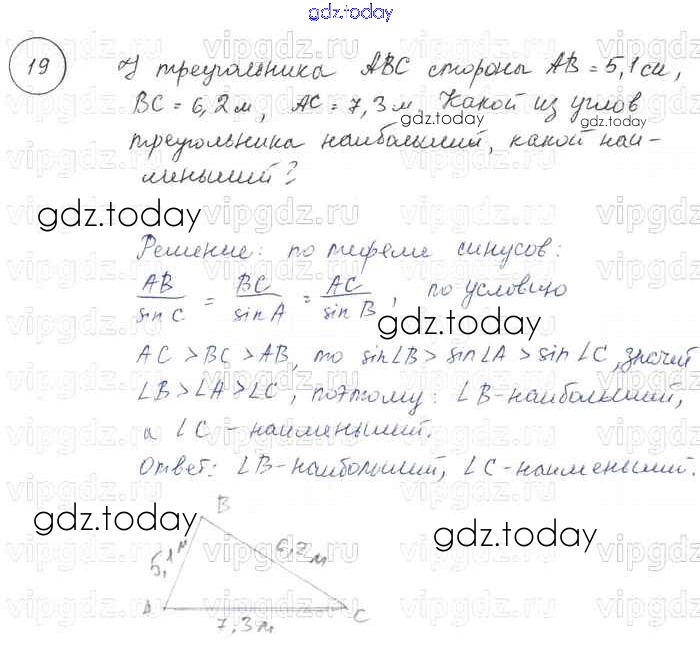 gdz.today
19
У треугольника ABC стороны AB = 5,1 см,
BC = 6,2 м, AC = 7,3 м. Какой из углов
треугольника наибольший, какой наи-
меньший?
gdz.today
gdz.today
Решение: по теореме синусов:
AB/sin C = BC/sin A = AC/sin B, по условию
gdz.today
AC > BC > AB, то sin∠B > sin∠A > sin∠C, значит
∠B > ∠A > ∠C, поэтому: ∠B - наибольший,
а ∠C - наименьший.
Ответ: ∠B - наибольший, ∠C - наименьший.
B
gdz.today
gdz.today
5,1 м
6,2 м
A
C
7,3 м
vipgdz.ru